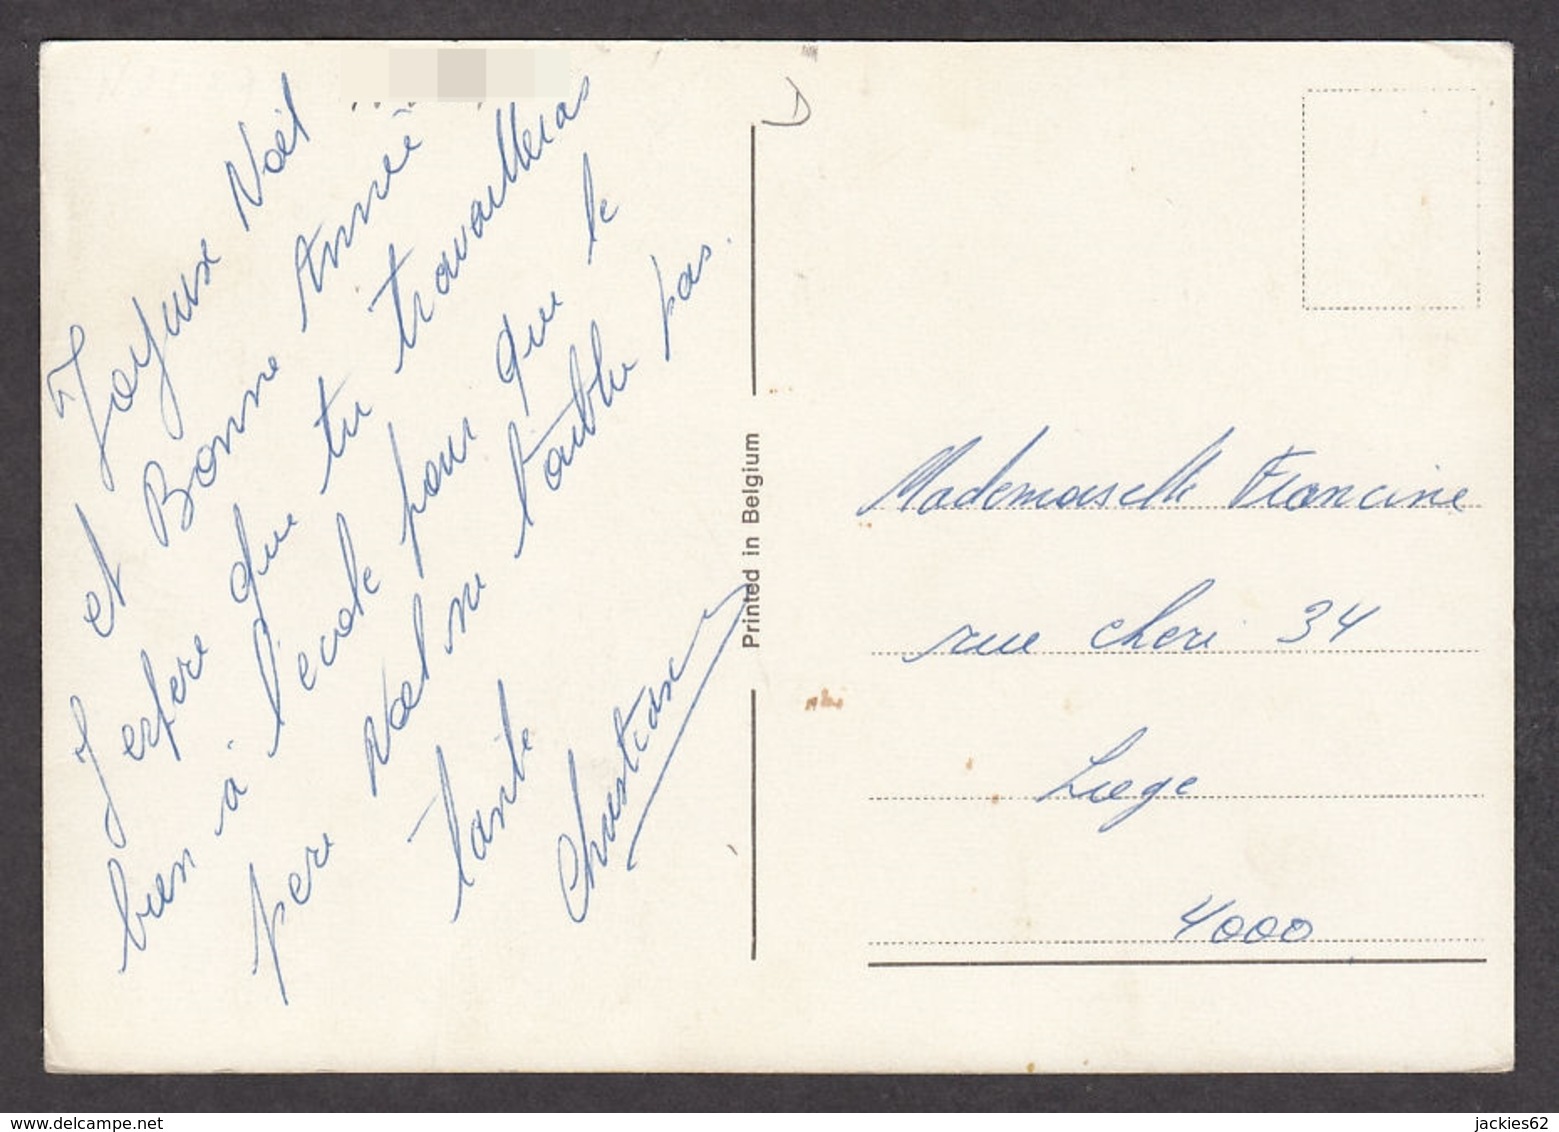 Joyeux Noël
et Bonne Année
J espere que tu travailleras
bien à l'ecole pour que le
pere Noël ne t'oublie pas.
tante
Christiane
Printed in Belgium
Mademoiselle Francine
rue cheri 34
Liege
4000
delcampe.net
jackies62